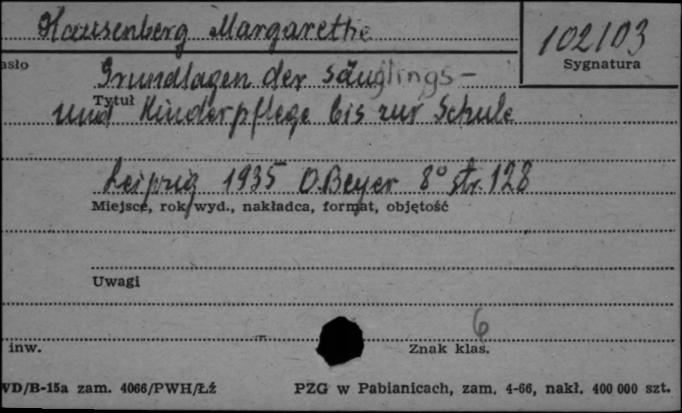 Hausenberg Margarethe
102103
asło
Sygnatura
Grundlagen der Säuglings-
Tytuł
und Kinderpflege bis zur Schule
Leipzig 1935 O.Beyer 8° str. 128
Miejsce, rok wyd., nakładca, format, objętość
Uwagi
6
inw.
Znak klas.
WD/B-15a zam. 4066/PWH/Łż
PZG w Pabianicach, zam. 4-66, nakł. 400 000 szt.